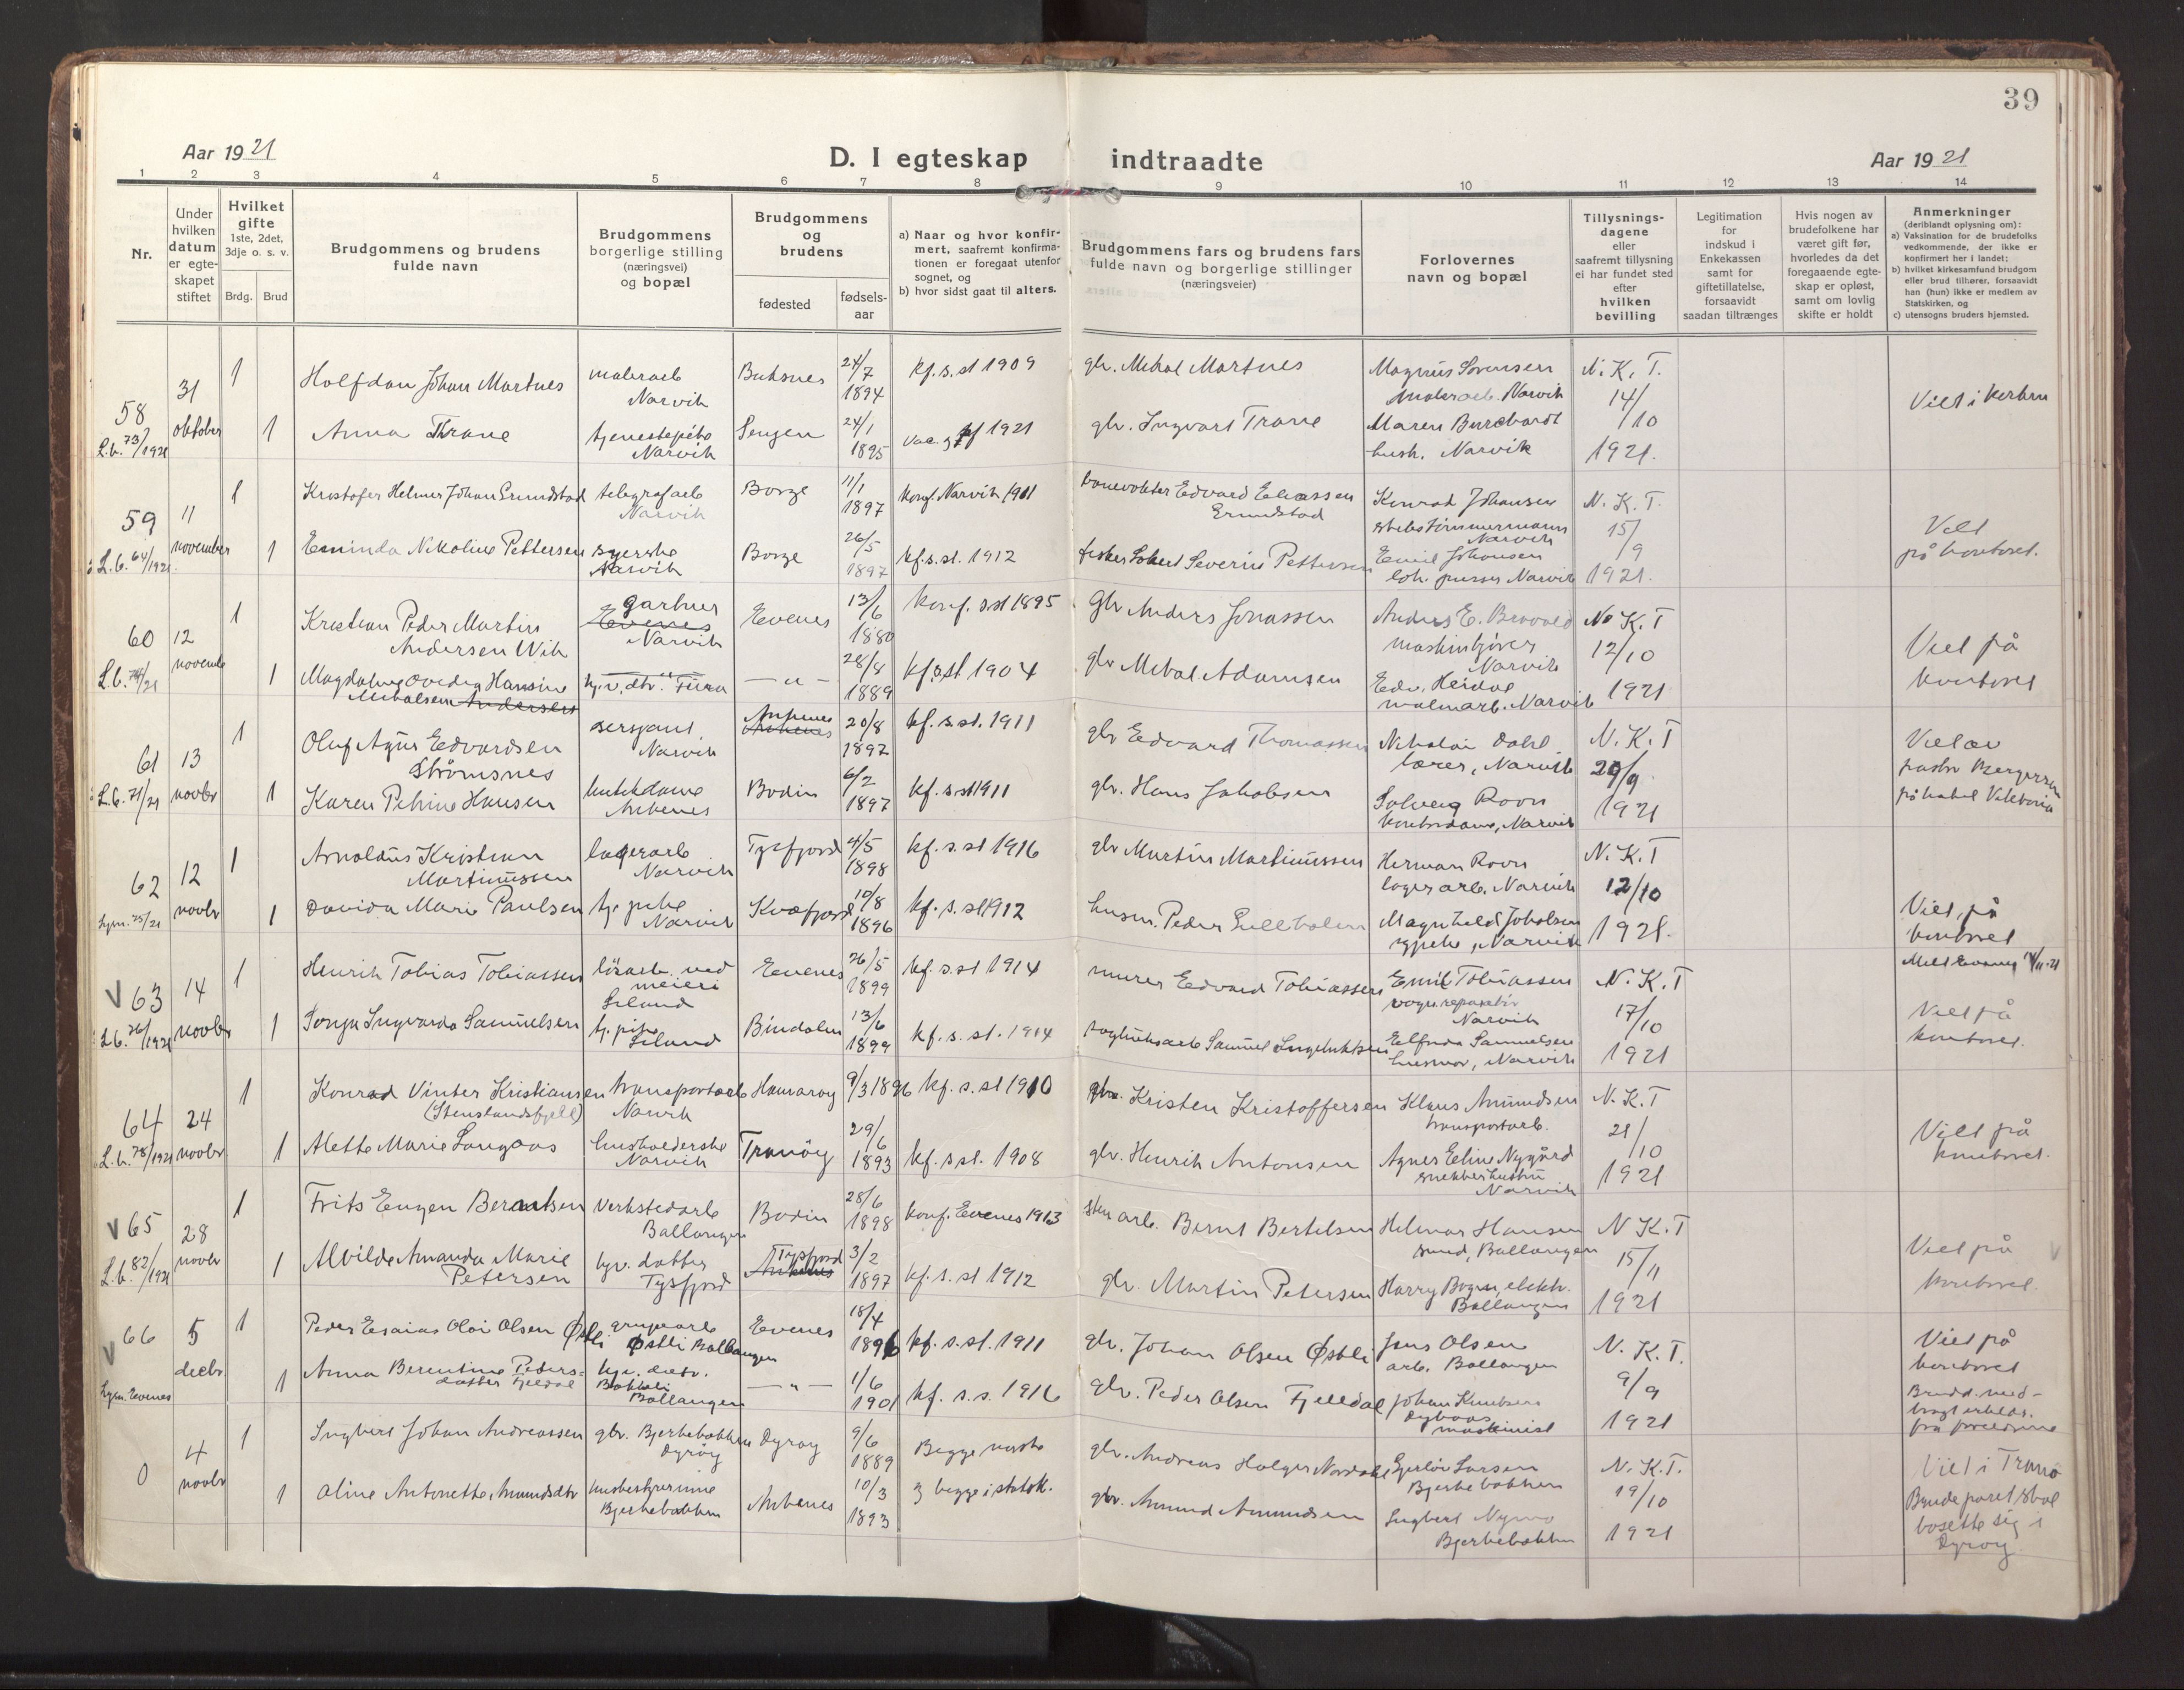 39
Aar 1921
D. I egteskap indtraadte
Aar 1921
1 2 3 4 5 6 7 8 9 10 11 12 13 14
Nr.
Under hvilken datum er egteskapet stiftet
Hvilket gifte 1ste, 2det, 3dje o. s. v.
Brdg. Brud
Brudgommens og brudens fulde navn
Brudgommens borgerlige stilling (næringsvei) og bopæl
Brudgommens og brudens
fødested
fødsels-aar
a) Naar og hvor konfirmert, saafremt konfirmationen er foregaat utenfor sognet, og
b) hvor sidst gaat til alters.
Brudgommens fars og brudens fars fulde navn og borgerlige stillinger (næringsveier)
Forlovernes navn og bopæl
Tillysningsdagene eller saafremt tillysning ei har fundet sted efter hvilken bevilling
Legitimation for indskud i Enkekassen samt for giftetillatelse, forsaavidt saadan tiltrænges
Hvis nogen av brudefolkene har været gift før, hvorledes da det foregaaende egteskap er opløst, samt om lovlig skifte er holdt
Anmerkninger (deriblandt oplysning om):
a) Vaksination for de brudefolks vedkommende, der ikke er konfirmert her i landet;
b) hvilket kirkesamfund brudgom eller brud tilhører, forsaavidt han (hun) ikke er medlem av Statskirken, og
c) utensogns bruders hjemsted.
58 L.b. 73/1921 31 oktober
1 Halfdan Johan Martnes malerarb Narvik Buksnes 24/7 1894 kf. s. st 1909 gbr. Mikal Martnes Magnus Sørensen malerarb. Narvik N. K. T. 14/10 1921.
1 Anna Thrane tjenestepike Narvik Senjen 24/1 1895 1921 gbr. Ingvart Trane Maren Burchardt hush. Narvik
Viet i kirken
59 L.b. 64/1921 11 november
1 Kristofer Helmer Johan Grundstad telegrafarb Narvik Borge 11/1 1897 konf. Narvik 1911 banevokter Edvard Eliassen Grundstad Konrad Johansen Narvik N. K. T. 15/9 1921.
1 Erninda Nikoline Pettersen syerske Narvik Borge 26/5 1897 kf. s. st. 1912 fisker Severin Pettersen Emil Johansen lok. pusser Narvik
Viet på kontoret.
60 L.b. 74/21 12 novemb
1 Kristian Peder Martin Andersen Wik gartner Evenes Narvik Evenes 13/6 1880 konf. s. st 1895 Gbr Anders Jonassen Anders E. maskinkjører Narvik N. K. T 12/10 1921
1 Magdalena Ovedia Hansine Mikalsen Andersen Evenes 28/8 1889 kf. s. st 1904 gbr Mikal Adamsen Edv. Heidal malmarb. Narvik
Viet på kontoret
61 L.b. 71/21 13 novbr
1 Oluf Agur Edvardsen Strømsnes sersjant Narvik Ankenes 20/8 1892 kf. s. st. 1911 gbr Edvard Thomassen Nikolai Dahl lærer, Narvik N. K. T 29/9 1921
1 Karen Petrine Hansen butikdame Ankenes Bodin 6/2 1897 kf. s. st 1911 gbr. Hans Jakobsen Solveig Rovn kontordame, Narvik
Viet av pastor på hotel Viktoria
62 Lysn. 75/21 12 novbr
1 Arnoldus Kristian Martinussen lagerarb Narvik Tysfjord 4/5 1898 kf. s. st 1916 gbr Martin Martinussen Herman Rovn lagerarb. Narvik N. K. T 12/10 1921.
1 Davida Marie Paulsen tj. pike Narvik Kvæfjord 10/8 1896 kf. s. st 1912 husm. Peder Magnhild Jakobsen sypike, Narvik
Viet på kontoret
V 63 L.b. 76/1921 14 novbr
1 Henrik Tobias Tobiassen løsarb ved meieri Liland Evenes 26/5 1899 kf. s. st 1914 murer Edvard Tobiassen Emil Tobiassen vogn reparatør Narvik N. K. T 17/10 1921
1 Sonja Ingvarda Samuelsen tj. pike Liland Bindalen 13/6 1899 kf. s. st. 1914 sagbruksarb Samuel Ingebriktsen Elfrida Samuelsen husmor, Narvik
Viet på kontoret.
64 L.b. 78/1921 24 novbr
1 Konrad Vinter Kristiansen (Stenslandsfjell) transportarb Narvik Hamarøy 9/3 1896 kf. s. st 1910 gbr. Kristen Kristoffersen Klaus Amundsen transportarb. N. K. T 21/10 1921
1 Alette Marie Langaas husholderske Narvik Tranøy 29/6 1893 kf. s. st. 1908 gbr. Henrik Antonsen Agnes Eline Nygård snekkerhustru Narvik
Viet på kontoret.
V 65 L.b. 82/1921 28 novbr
1 Frits Eugen Berntsen Verkstedarb Ballangen Bodin 28/6 1898 konf. Evenes 1913 sten arb. Bernt Bertelsen Helmar Hansen smed, Ballangen N K. T 15/11 1921
1 Alvilde Amanda Marie Petersen gbr. datter Tysfjord Tysfjord Ankenes 3/2 1897 kf. s. st 1912 gbr. Martin Petersen Harry Bogen, elektr. Ballangen
Viet på kontoret.
V 66 Lysn. Evenes 5 decbr.
1 Peder Esaias Olai Olsen Østli grupearb Østli Ballangen Evenes 18/4 1896 kf. s. st. 1911 gbr. Johan Olsen Østli Jens Olsen arb. Ballangen N. K. T. 9/9 1921
1 Anna Berentine Pedersdatter Fjeldal gbr. datr. Ballangen — „ — 1/6 1901 kf. s. s. 1916 gbr. Peder Olsen Fjelldal Johan Knutsen maskinist
Viet på kontoret
0 4 novbr
1 Ingbert Johan Andreassen gbr. Bjerkebakken Dyrøy Dyrøy 9/6 1889 Begge gbr. Andreas Holger Nordahl Larsen Bjerkebakken N. K. T. 19/10 1921
1 Oline Antonette Amundsdtr husbestyrerinne Bjerkebakken Ankenes 10/3 1893 begge i statsk. gbr. Amund Amundsen Ingbert Nymo Bjerkebakken
Viet i Tranø Brudeparet skal bosette sig i Dyrøy.